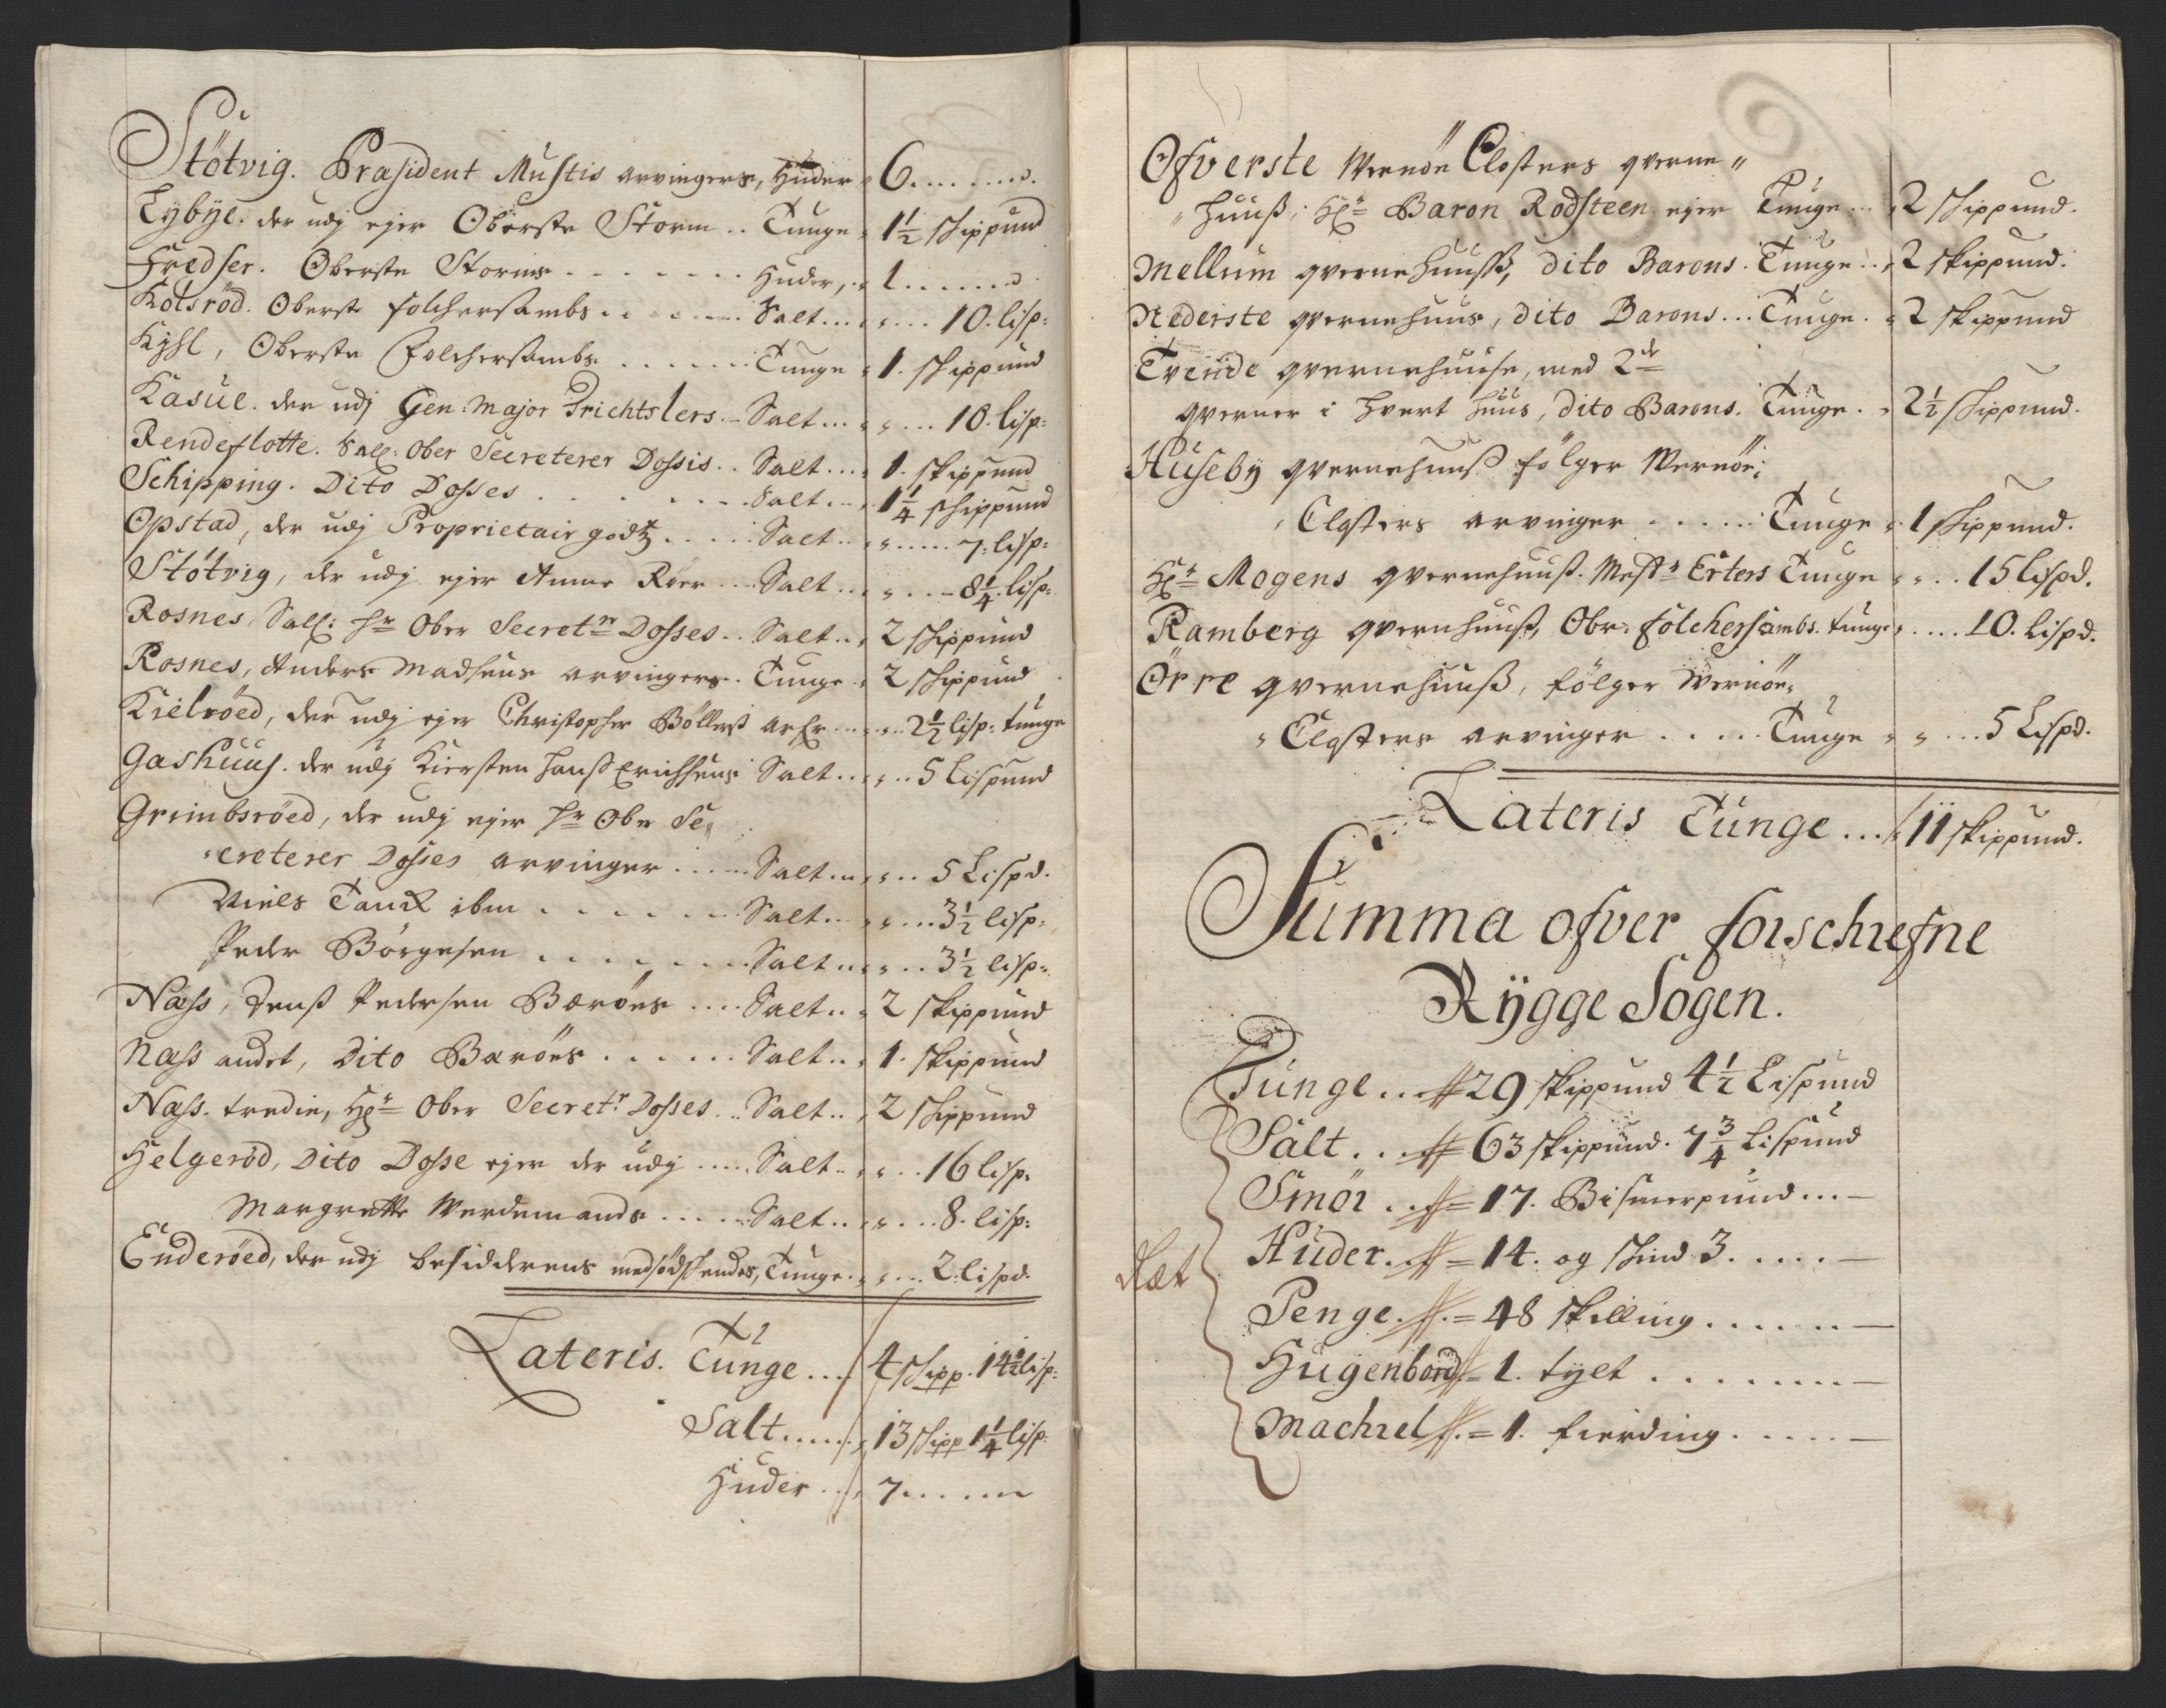 Stötvig. Præsident Mustis arvingers, Huder „ 6........
Lybye. der udj ejer Oberste Storm .. Tunge „ 1½ schippund
Fredser. Oberste Storms . . . . . . . Huder, „ 1.......
Kolsröd. Oberst folchersambs . . . . . . Salt... „ .... 10. lisp:
Kihl, Oberste Folchersambs. . . . . . . Tunge „ 1. schippund
Kasue. der udj Gen: Major Trichtslers. – Salt ... „ ... 10. lisp:
Rendeflotte. Sall: Ober Secreterer Dossis .. Salt ... „ 1. skippund
Schipping. Dito Dosses . . . . . . . Salt ... „ 1¼ schippund
Opstad, der udj Proprietair godtz . . . . . Salt .. „ ..... 7. lisp:
Stötvig, der udj ejer Anne Röer ... Salt ... „ ... 8¼ lisp:
Rosnes, Sall: Hr Ober Secretrr Dosses .. Salt .. „ 2 schippund
Rosnes, Anders Madsens arvingers. Tunge „ 2 schippund
Kielröed, der udj ejer Christopher Böllers arfr ... „ .. 2½ lisp: tunge
Gashuus. der udj Kiersten Hanss Erichsens Salt .. „ .. 5 Lispund
Grimbsröed, der udj ejer Hr Ober Se„
„creterer Dosses arvinger . . . . . Salt ... „ .. 5 Lispd.
Niels Tank ibm . . . . . . . Salt ... „ ... 3½ lisp:
Peder Börgesen . . . . . . . Salt ... „ .. 3½ lisp:
Næss, Jenss Pedersen Bæröes .... Salt .. „ 2 skippund
Næss andet, Dito Bæröes . . . . . . Salt .. „ 1. skippund
Næss. tredie, Hr Ober Secretr Dosses .. Salt .. „ 2 schippund
Helgeröd, Dito Dosse ejer der udj ..... Salt .. „ .. 16 lisp:
Margrette Werdemands ..... Salt .. „ ... 8. lisp:
Enderöed, der udj besidderens medsödskendes, Tunge . „ ... 2. lispd.
Lateris. Tunge .... 4 schipp. 14½ lisp:
Salt...... „ 13 schipp 1¼ lisp:
Huder ... „ 7......
Öfverste Wernöe Closters qverne„
„huuss; Hr Baron Rodsteen ejer Tunge ... „ 2 schippund.
Mellum qvernehuuss, dito Barons. Tunge .. „ 2 skippund.
Nederste qvernehuus, dito Barons ... Tunge . „ 2 skippund
Tvende qvernehuuse, med 2de
qverner i hvert huus, dito Barons. Tunge . „ 2½ schippund.
Huseby qvernehuuss fölger Wernöe;
„Closters arvinger . . . . . Tunge „ 1 schippund.
Hr Mogens qvernehuuss. Mestr Erters Tunge „ „ .. 15 Lispd.
Ramberg qvernhuuss, Obr: folchersambs. tunge „ .... 10. Lispd.
Örre qvernehuuss, fölger Wernöe„
„Closters arvinger . . . . . Tunge „ „ ... 5 Lispd.
Lateris Tunge ... „ 11 skippund.
Summa ofver forschrefne
Rygge Sogen.
Tunge .. 29 skippund 4½ Lispund
Salt .. 63 skippund. 7¾ Lispund
Smör .. = 17. Bismerpund ... –
Huder. .. = 14. og skind 3. . . . . –
Penge . . = 48 skilling . . . . . . –
Hugenbord = 1. tylt . . . . . . . –
Machrel . = 1. fierding . . . . . –